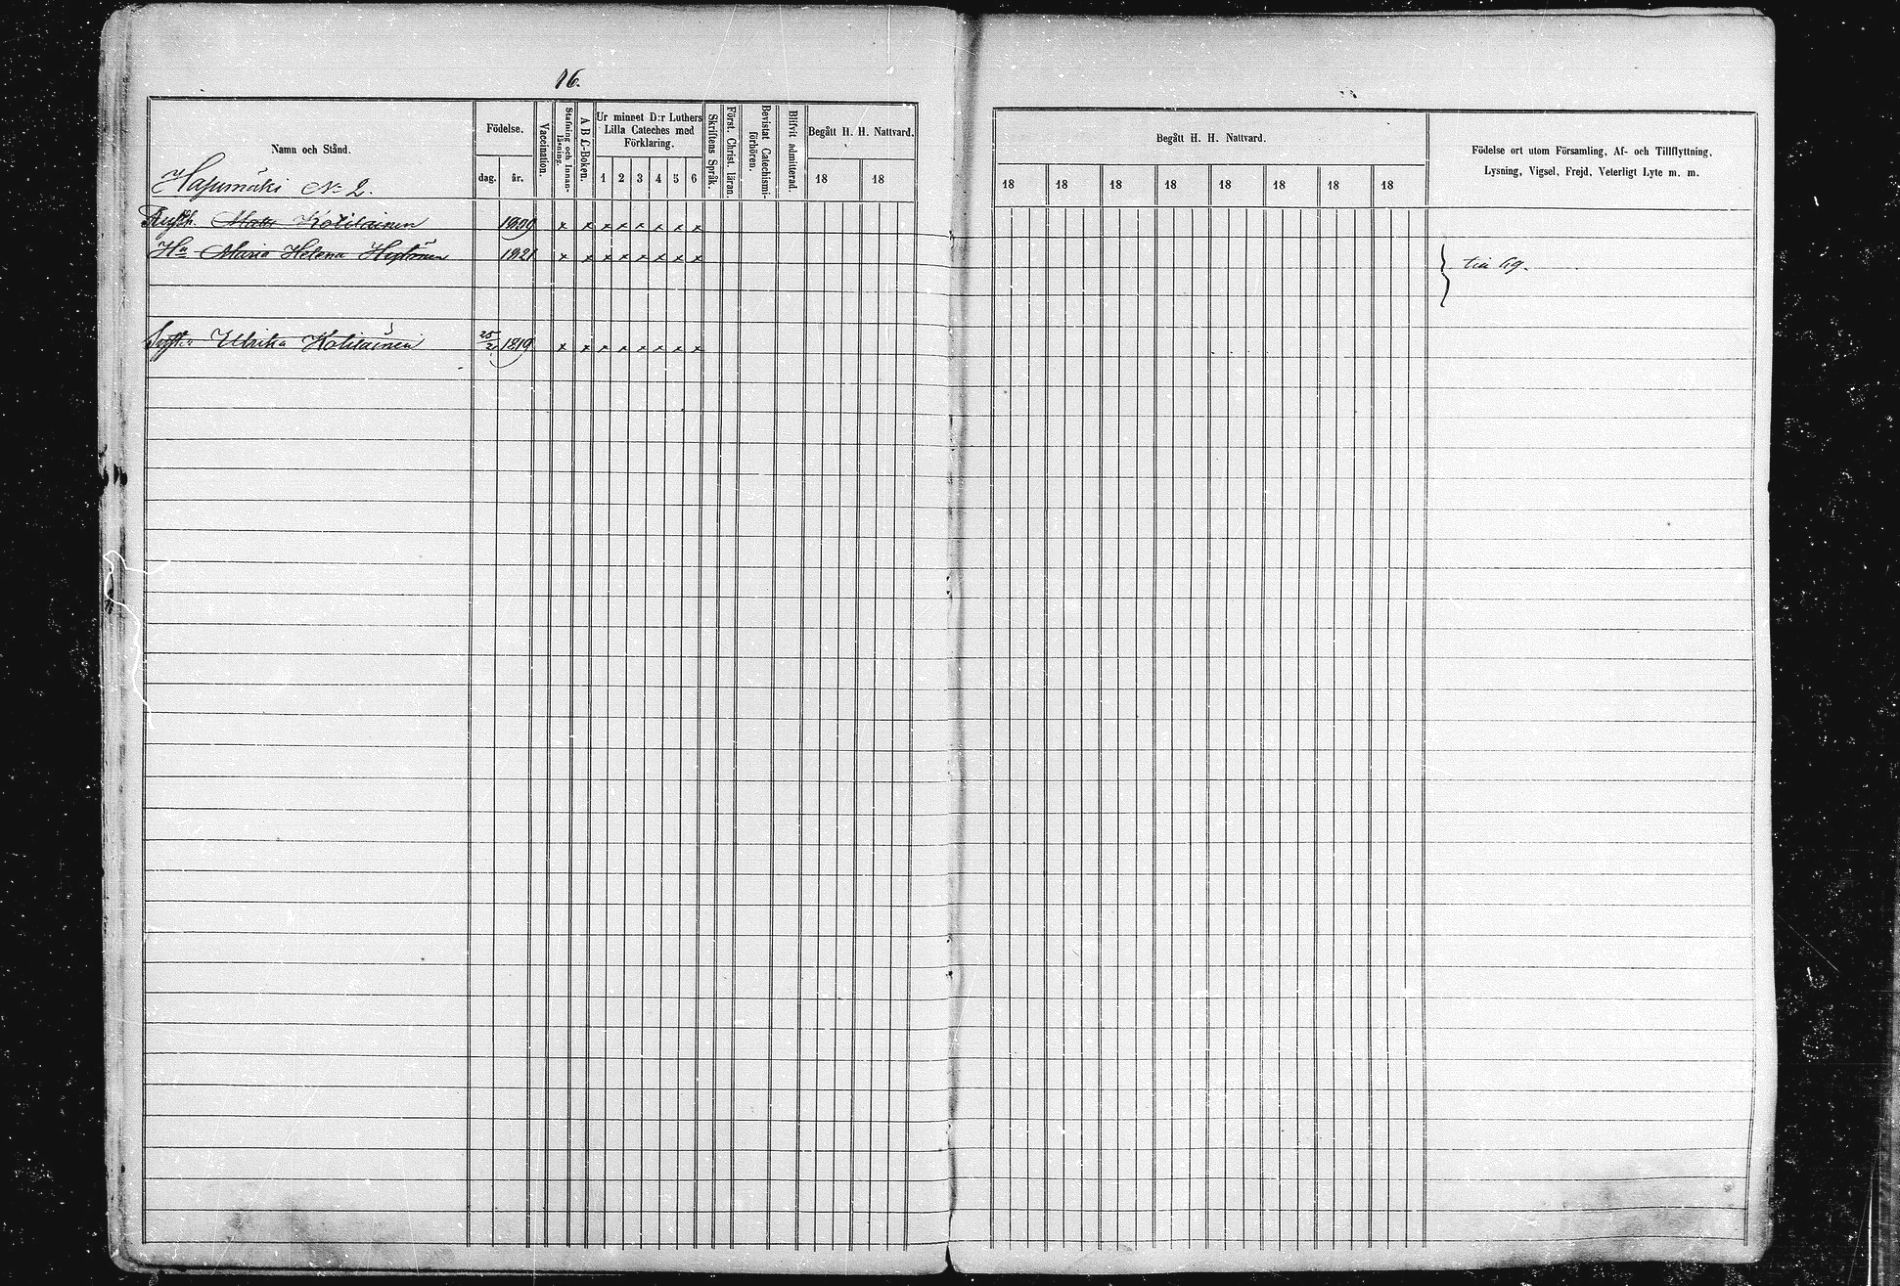 16.
Namn och Stånd.
Födelse.
dag. år.
Vaccination.
Stafning och Innan-
läsning.
A B C-Boken.
Ur minnet D:r Luthers
Lilla Cateches med
Förklaring.
1 2 3 4 5 6
Skriftens Språk.
Först. Christ. läran
Bevistat Catechismi-
förhören.
Blifvit admitterad.
Begått H. H. Nattvard.
18 18
Begått H. H. Nattvard.
18 18 18 18 18 18 18 18
Födelse ort utom Församling, Af- och Tillflyttning,
Lysning, Vigsel, Frejd, Veterligt Lyte m. m.
Hajumäki No 2.
Kotilainen x x x x x x x x
Hu Maria Helena 1821 x x x x x x x x
69.
Ulrika Kotilainen 1819 x x x x x x x x